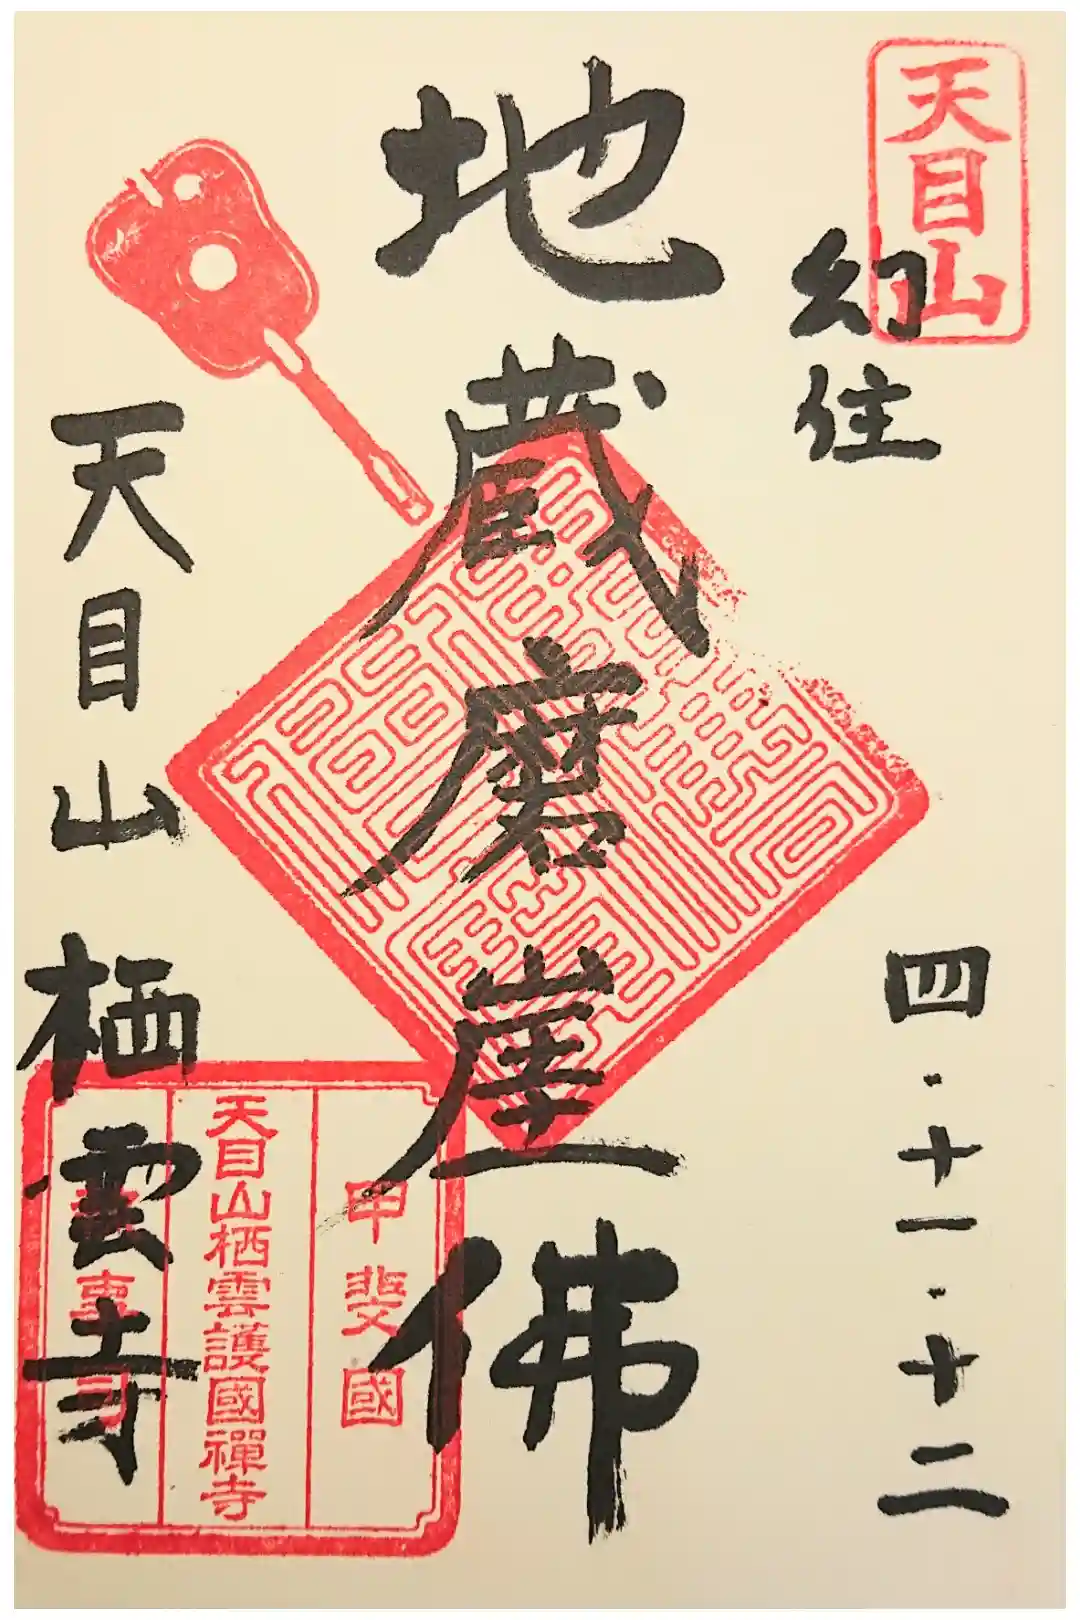 天目山
幻住
四・十一・十二
地蔵磨崖佛
天目山 栖雲寺
甲斐國
天目山栖雲護國禪寺